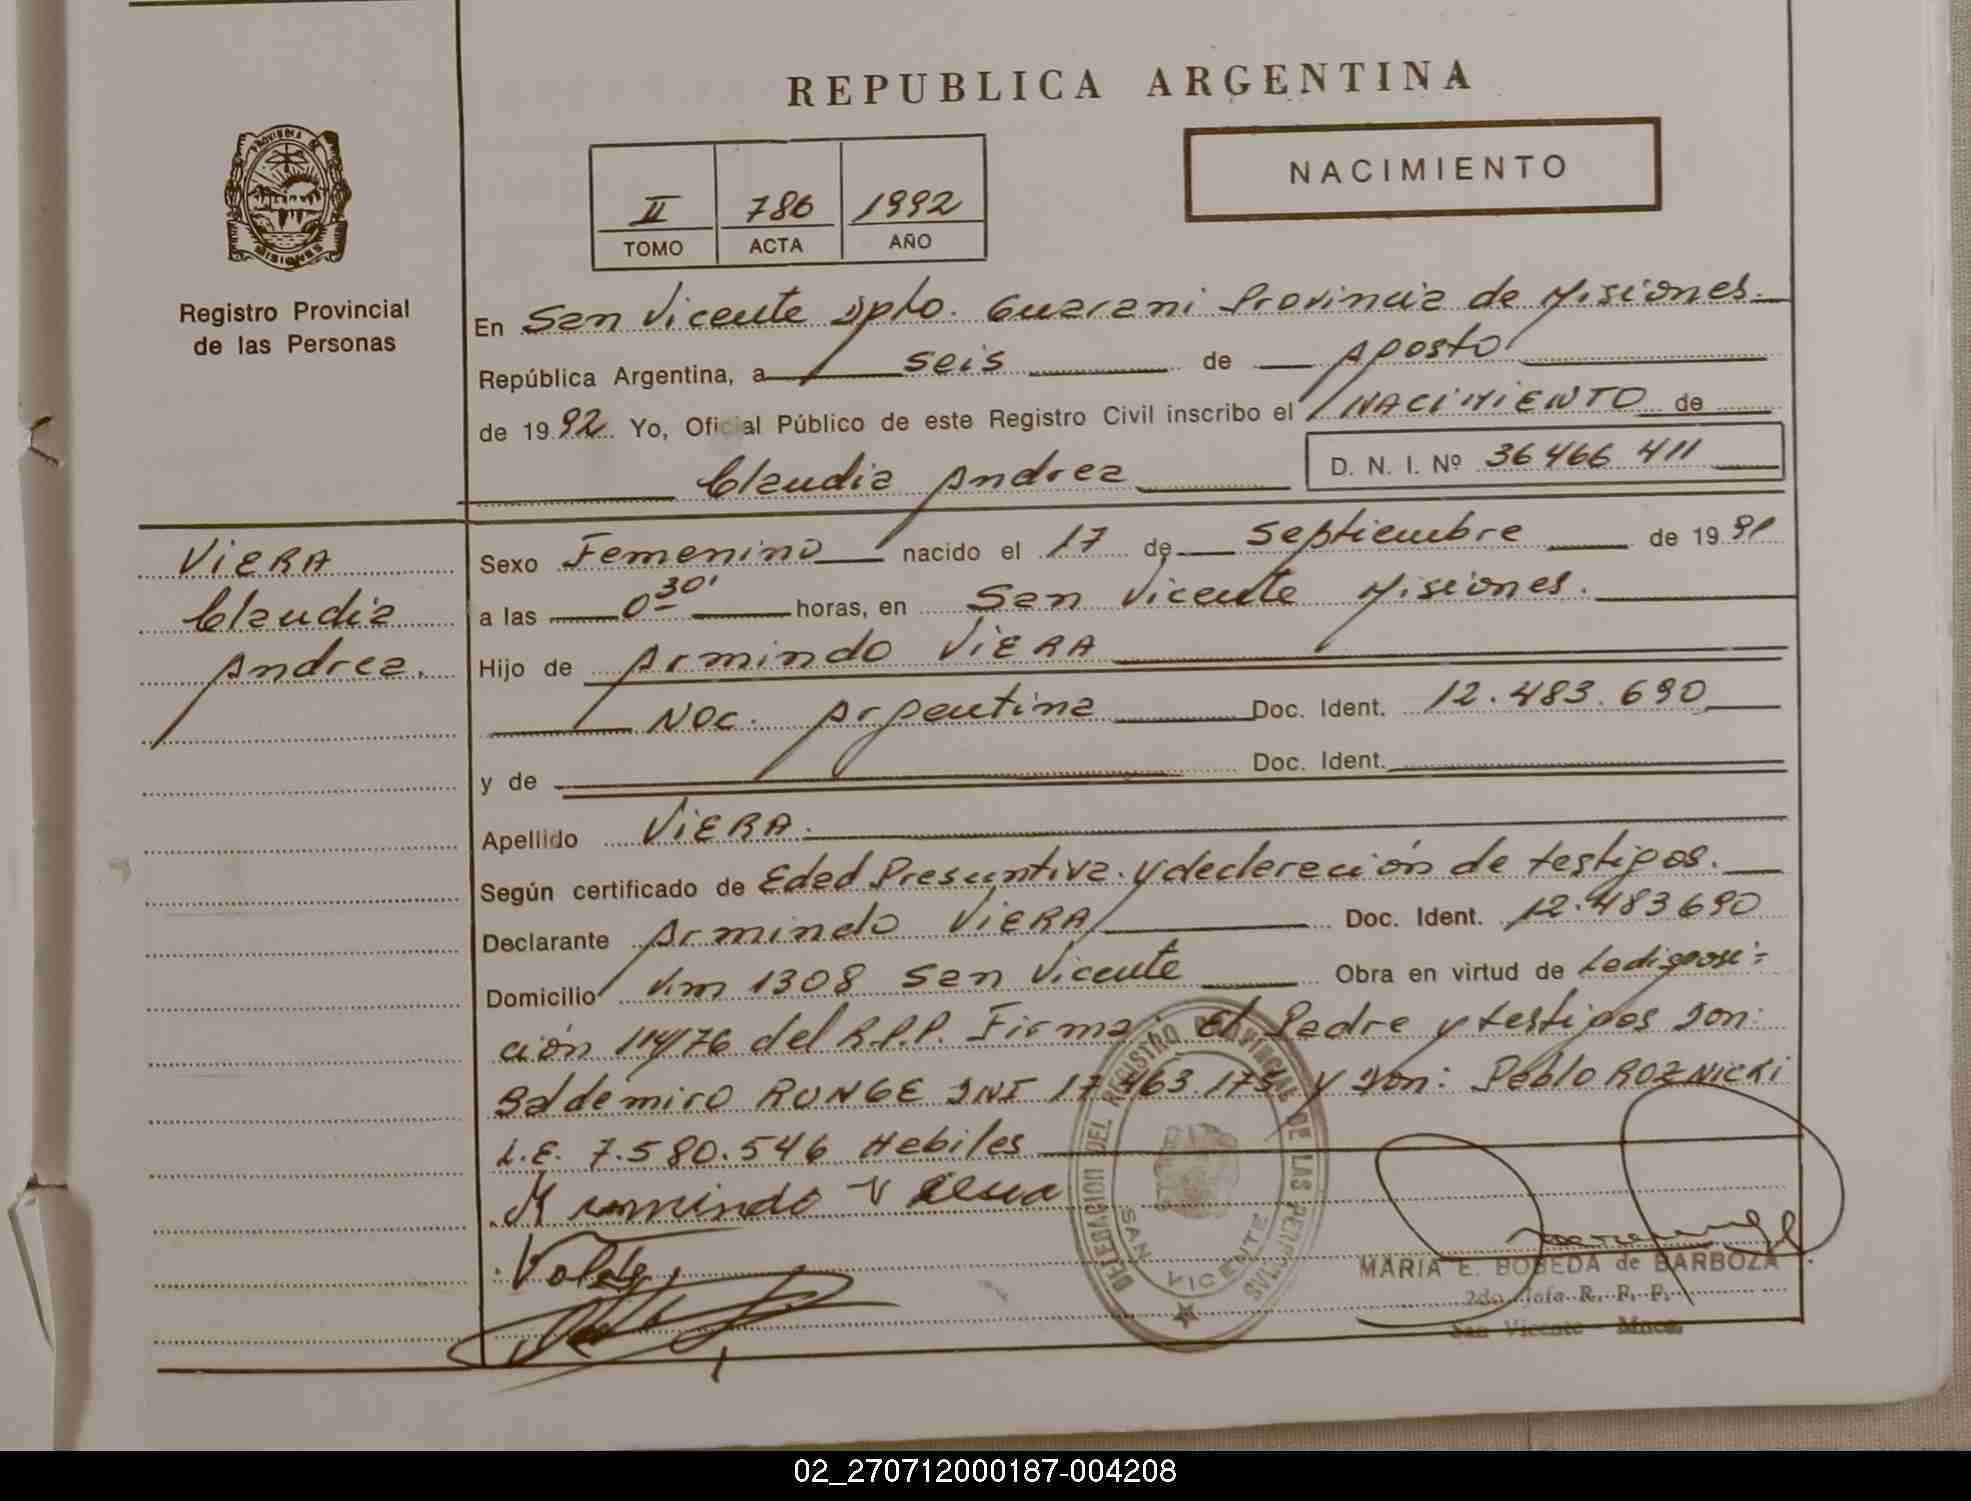 REPUBLICA ARGENTINA
PROVINCIA DE MISIONES
Registro Provincial
de las Personas
II 786 1992
TOMO ACTA AÑO
NACIMIENTO
En San Vicente Dpto. Guarani Provincia de Misiones.
República Argentina, a seis de Agosto
de 1992 Yo, Oficial Público de este Registro Civil inscribo el NACIMIENTO de
Claudia Andrea D. N. I. Nº 36 466 411
VIERA
Claudia
Andrea.
Sexo Femenino nacido el 17 de Septiembre de 1991
a las 0 30' horas, en San Vicente Misiones.
Hijo de Armindo VIERA
Nac. Argentina Doc. Ident. 12.483.690
y de Doc. Ident.
Apellido VIERA.
Según certificado de Edad Presuntiva. y declaración de testigos.
Declarante Armindo VIERA Doc. Ident. 12.483690
Domicilio Km 1308 San Vicente Obra en virtud de La disposi=
ción 114/76 del R.P.P. Firma: El Padre y testigos Don:
Baldemiro RUNGE DNI 17.463.175 y Don: Pablo ROZNICKI
L.E. 7.580.546 Habiles
Armindo Viera
DELEGACION DEL REGISTRO PROVINCIAL DE LAS PERSONAS
SAN VICENTE
MARIA E. BOBEDA de BARBOZA
2do. Jefe R. P. P.
San Vicente - Mnes.
02_270712000187-004208